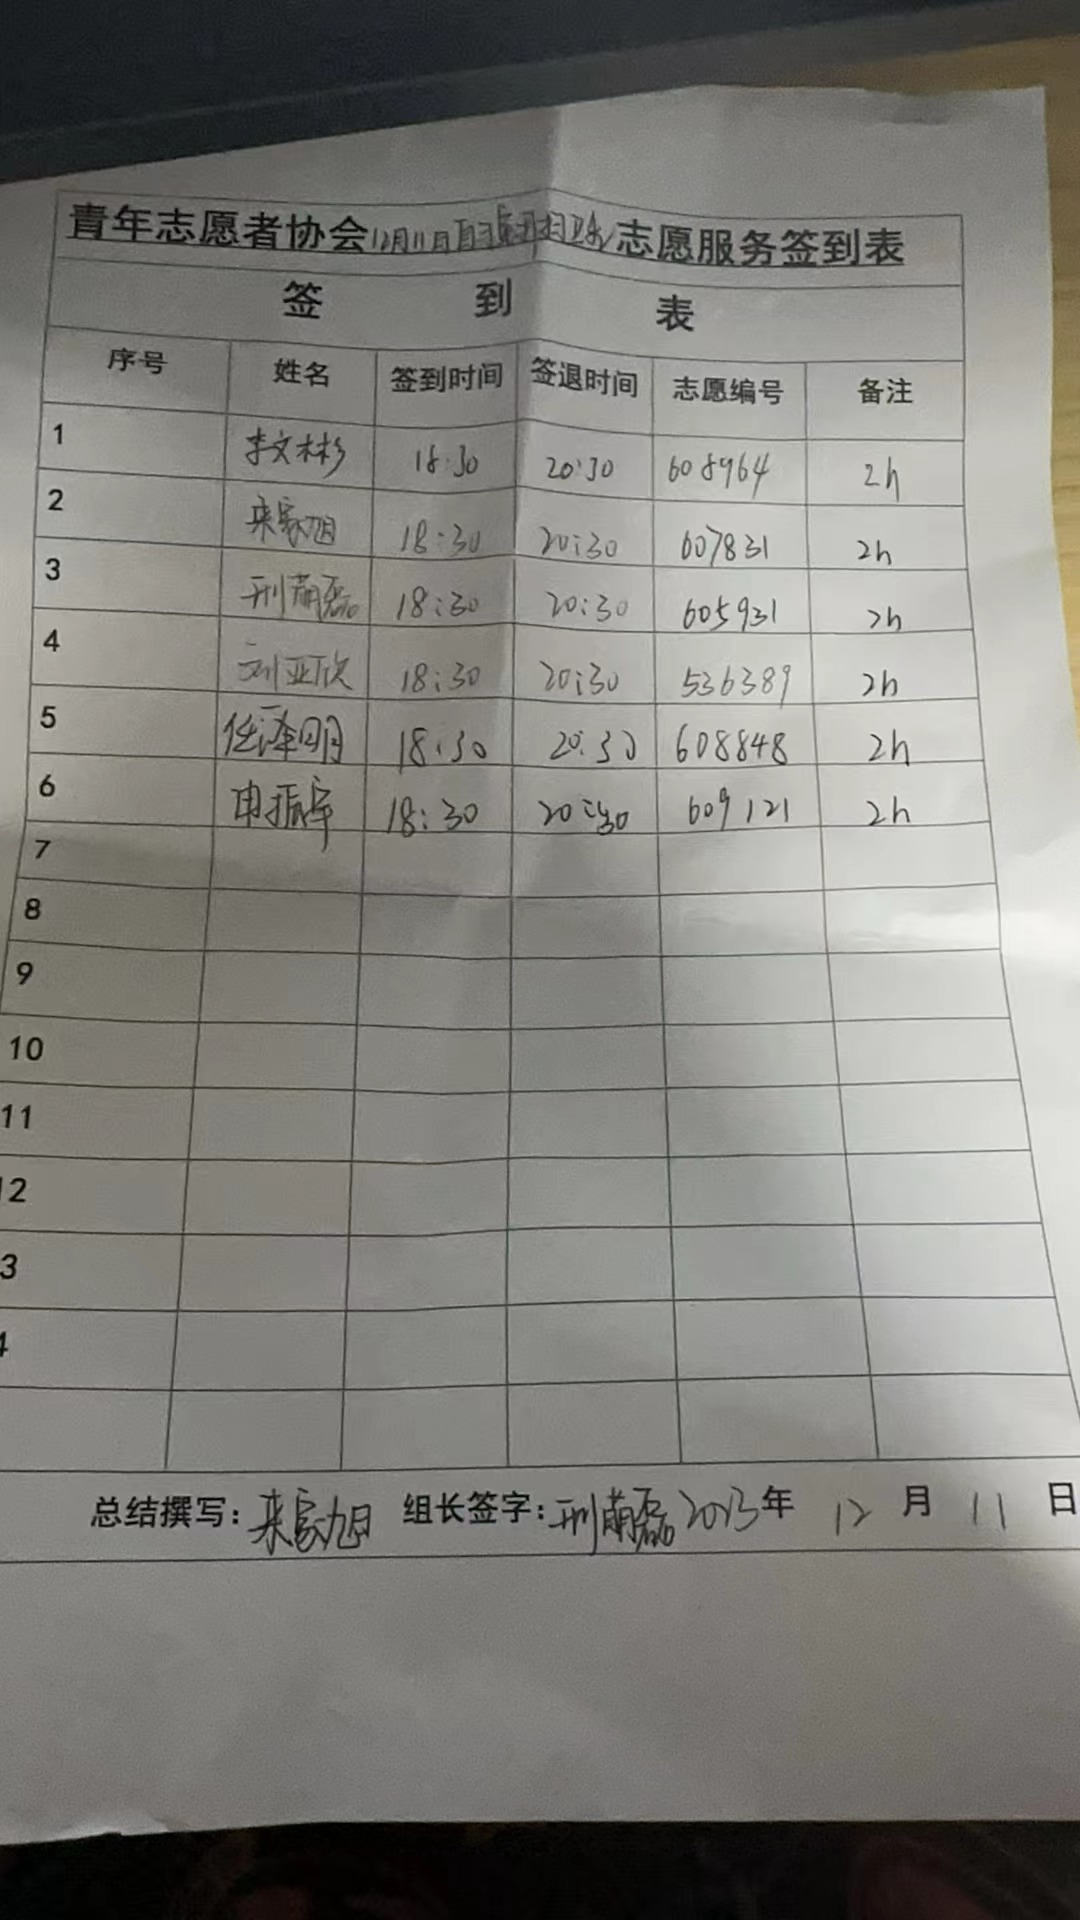 青年志愿者协会12月11日 志愿服务签到表
签 到 表
序号 姓名 签到时间 签退时间 志愿编号 备注
1 李文彬 18:30 20:30 608964 2h
2 来家旭 18:30 20:30 607831 2h
3 邢萌磊 18:30 20:30 605931 2h
4 刘亚欣 18:30 20:30 536389 2h
5 任泽明 18:30 20:30 608848 2h
6 申振宇 18:30 20:30 609121 2h
7
8
9
10
11
2
3
4
总结撰写：来家旭 组长签字：邢萌磊 2023年 12 月 11 日